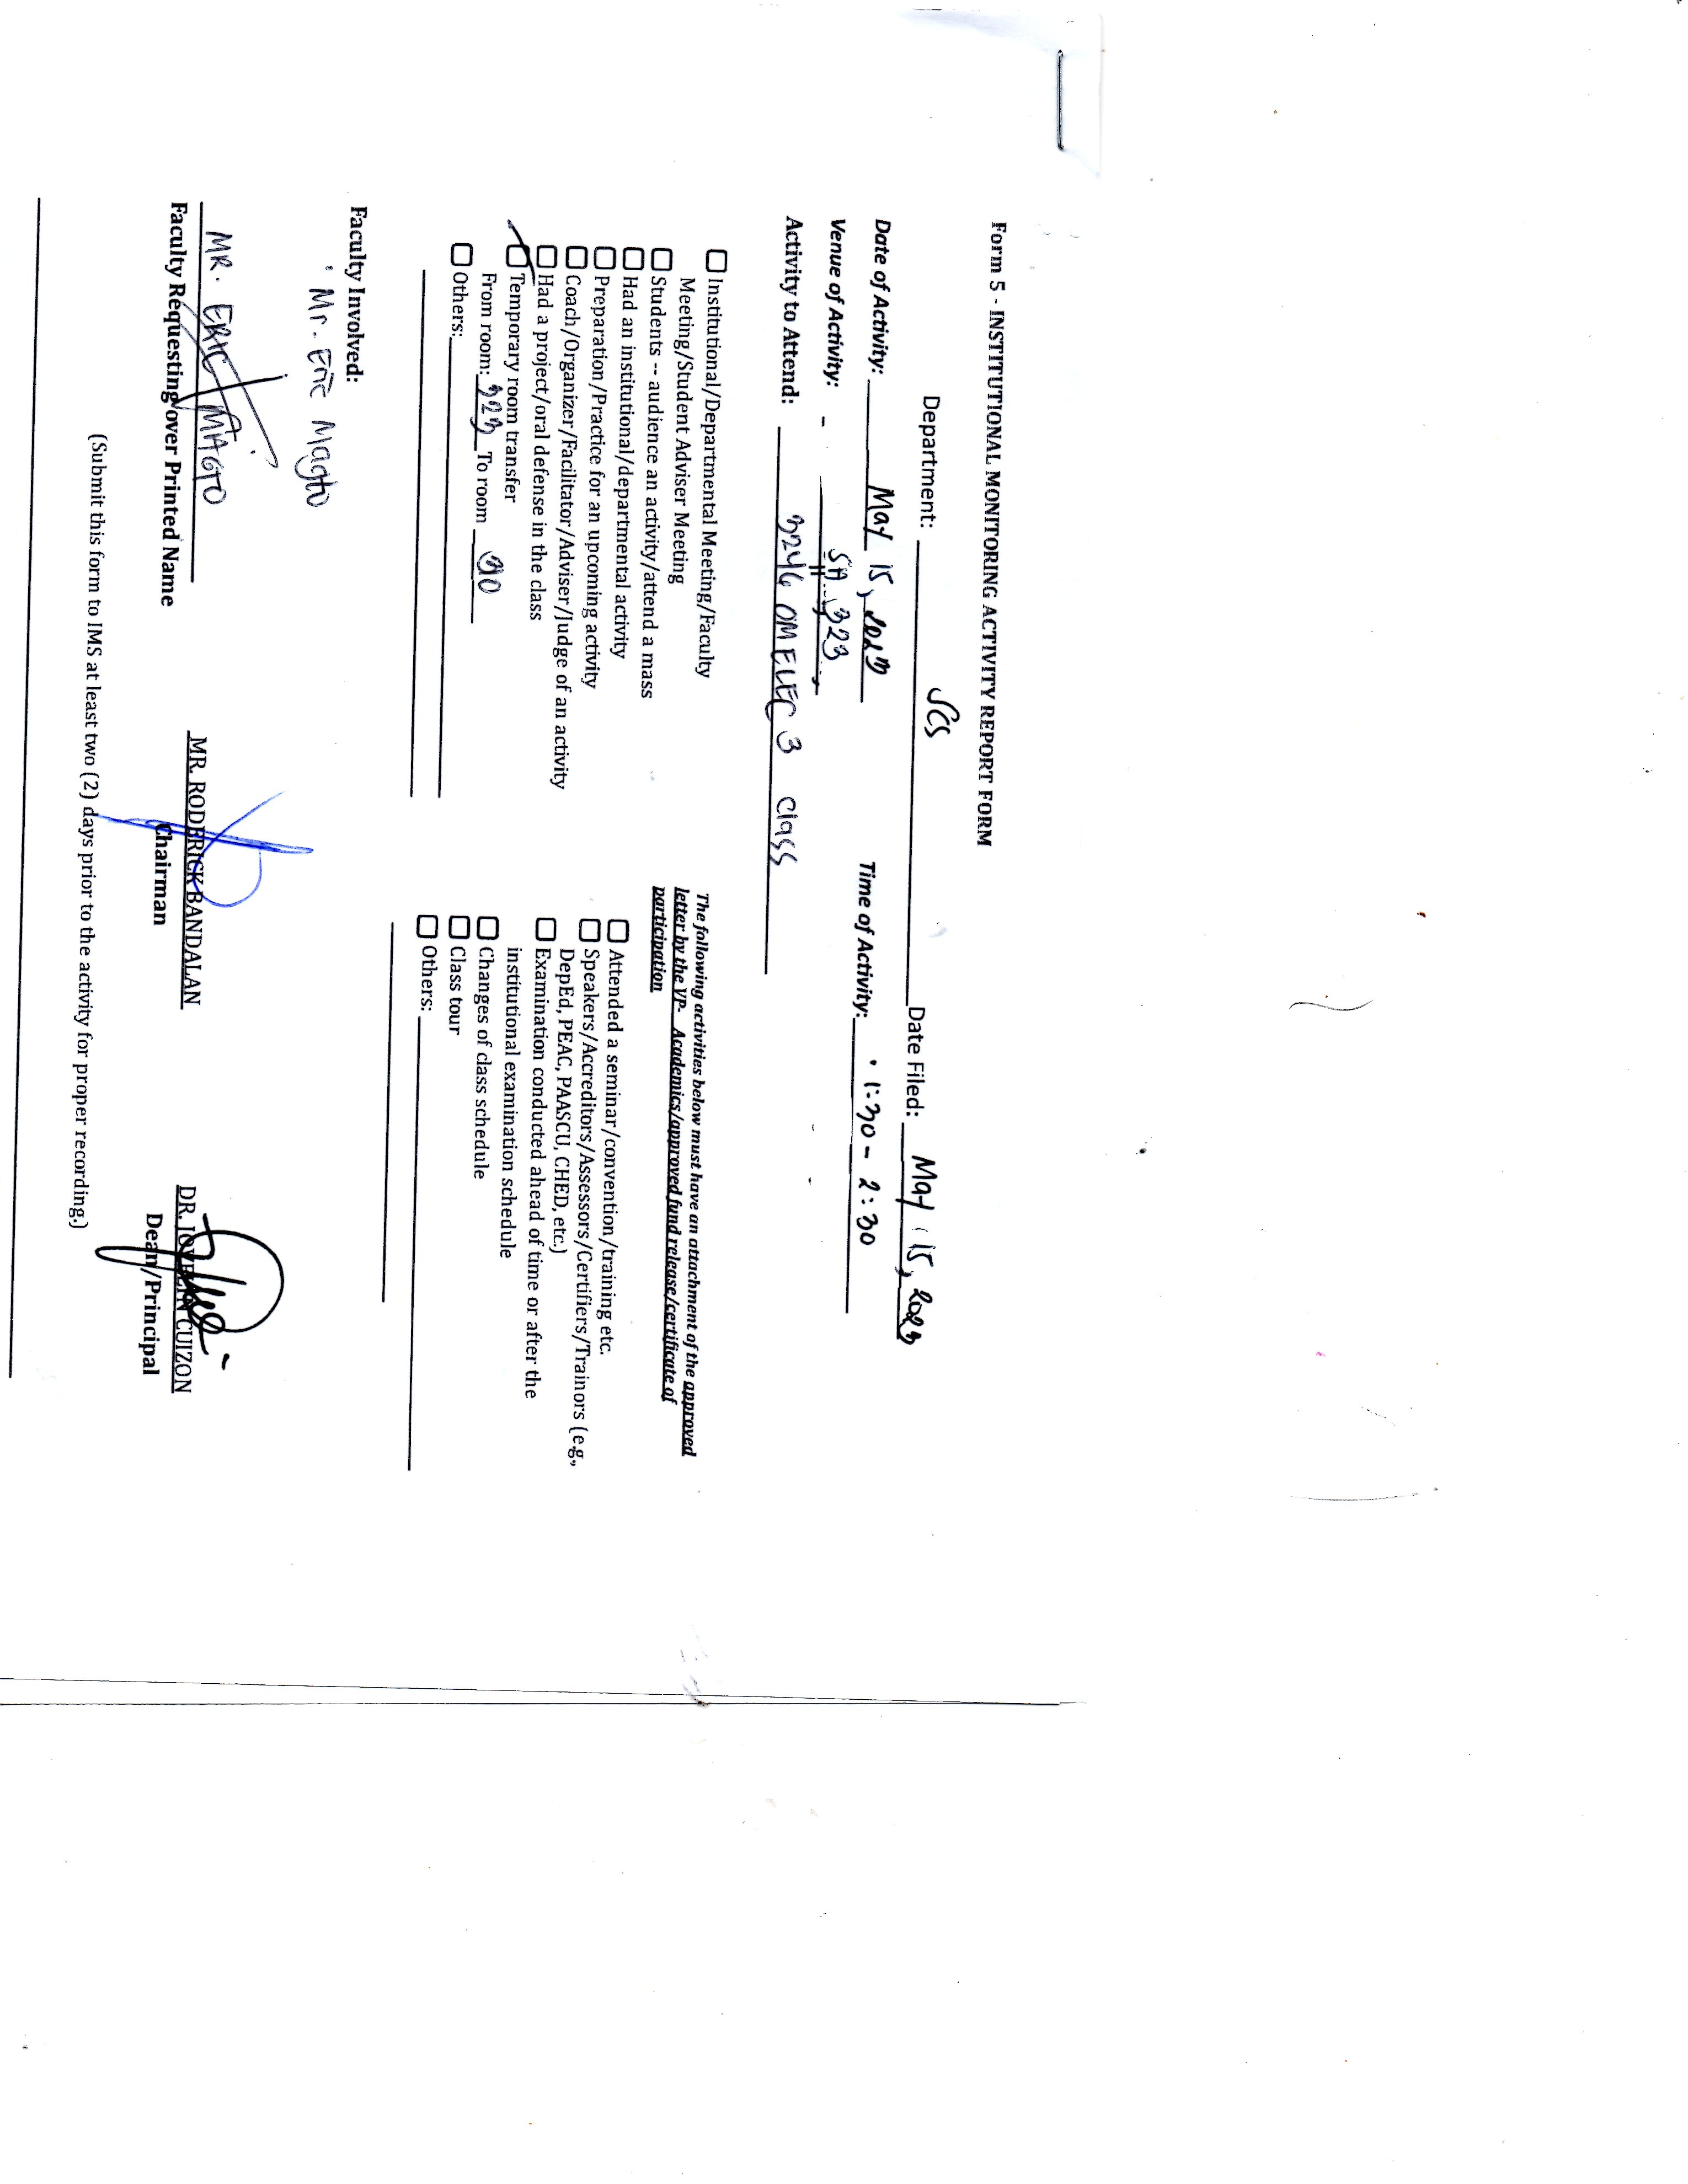 Form 5 - INSTITUTIONAL MONITORING ACTIVITY REPORT FORM
Department: SCS Date Filed: May 15, 2023
Date of Activity: May 15, 2023 Time of Activity: 1:30 - 2:30
Venue of Activity: - SA 323
Activity to Attend: OM ELEC 3 class
Institutional/Departmental Meeting/Faculty
Meeting/Student Adviser Meeting
Students -- audience an activity/attend a mass
Had an institutional/departmental activity
Preparation/Practice for an upcoming activity
Coach/Organizer/Facilitator/Adviser/Judge of an activity
Had a project/oral defense in the class
Temporary room transfer
From room: 323 To room
Others:
The following activities below must have an attachment of the approved
letter by the VP- Academics/approved fund release/certificate of
participation
Attended a seminar/convention/training etc.
Speakers/Accreditors/Assessors/Certifiers/Trainors (e.g.,
DepEd, PEAC, PAASCU, CHED, etc.)
Examination conducted ahead of time or after the
institutional examination schedule
Changes of class schedule
Class tour
Others:
Faculty Involved:
Mr. Eric Magto
MR. ERIC MAGTO
Faculty Requesting over Printed Name
MR. RODERICK BANDALAN
Chairman
DR. JOVELYN CUIZON
Dean/Principal
(Submit this form to IMS at least two (2) days prior to the activity for proper recording.)